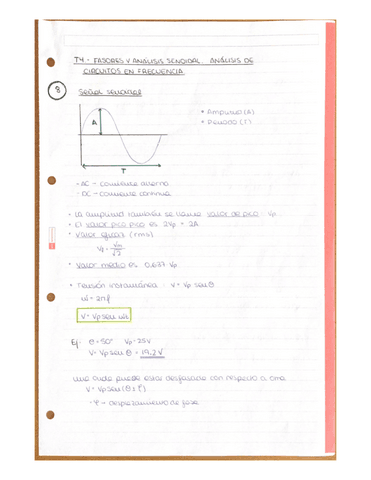 T4.- FASORES Y ANÁLISIS SENOIDAL. ANÁLISIS DE
CIRCUITOS EN FRECUENCIA.
8
SEÑAL SENOIDAL
A
T
• Amplitud (A)
• Periodo (T)
- AC - corriente alterna
- DC - corriente continua
• La amplitud también se llama valor de pico Vp
• El valor pico pico es 2Vp = 2A
• Valor eficaz (rms)
Vm
√2
• Valor medio es 0.637 Vp
• Tensión instantánea: V = Vp sen θ
ω = 2πf
V = Vp sen ωt
Ej: θ = 50° Vp = 25V
V = Vp sen θ = 19,2 V
Una onda puede estar desfasada con respecto a otra
V = Vp sen (θ ± φ)
φ → desplazamiento de fase